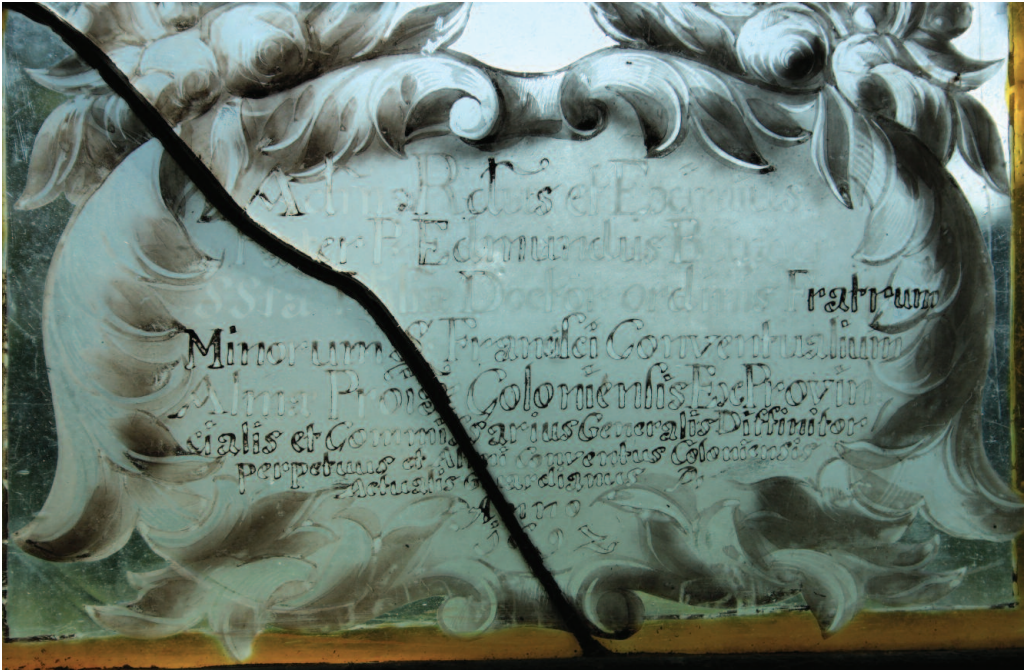 Adm s Rdus et Eximius
Pater F Edmundus
SS Doctor ordinis Fratrum
Minorum S Francisci Conventualium
Almæ Proiæ Coloniensis ExProvin
cialis et Commissarius Generalis Diffinitor
perpetuus et Almi Conventus Coloniensis
Actualis Guardianus
Anno